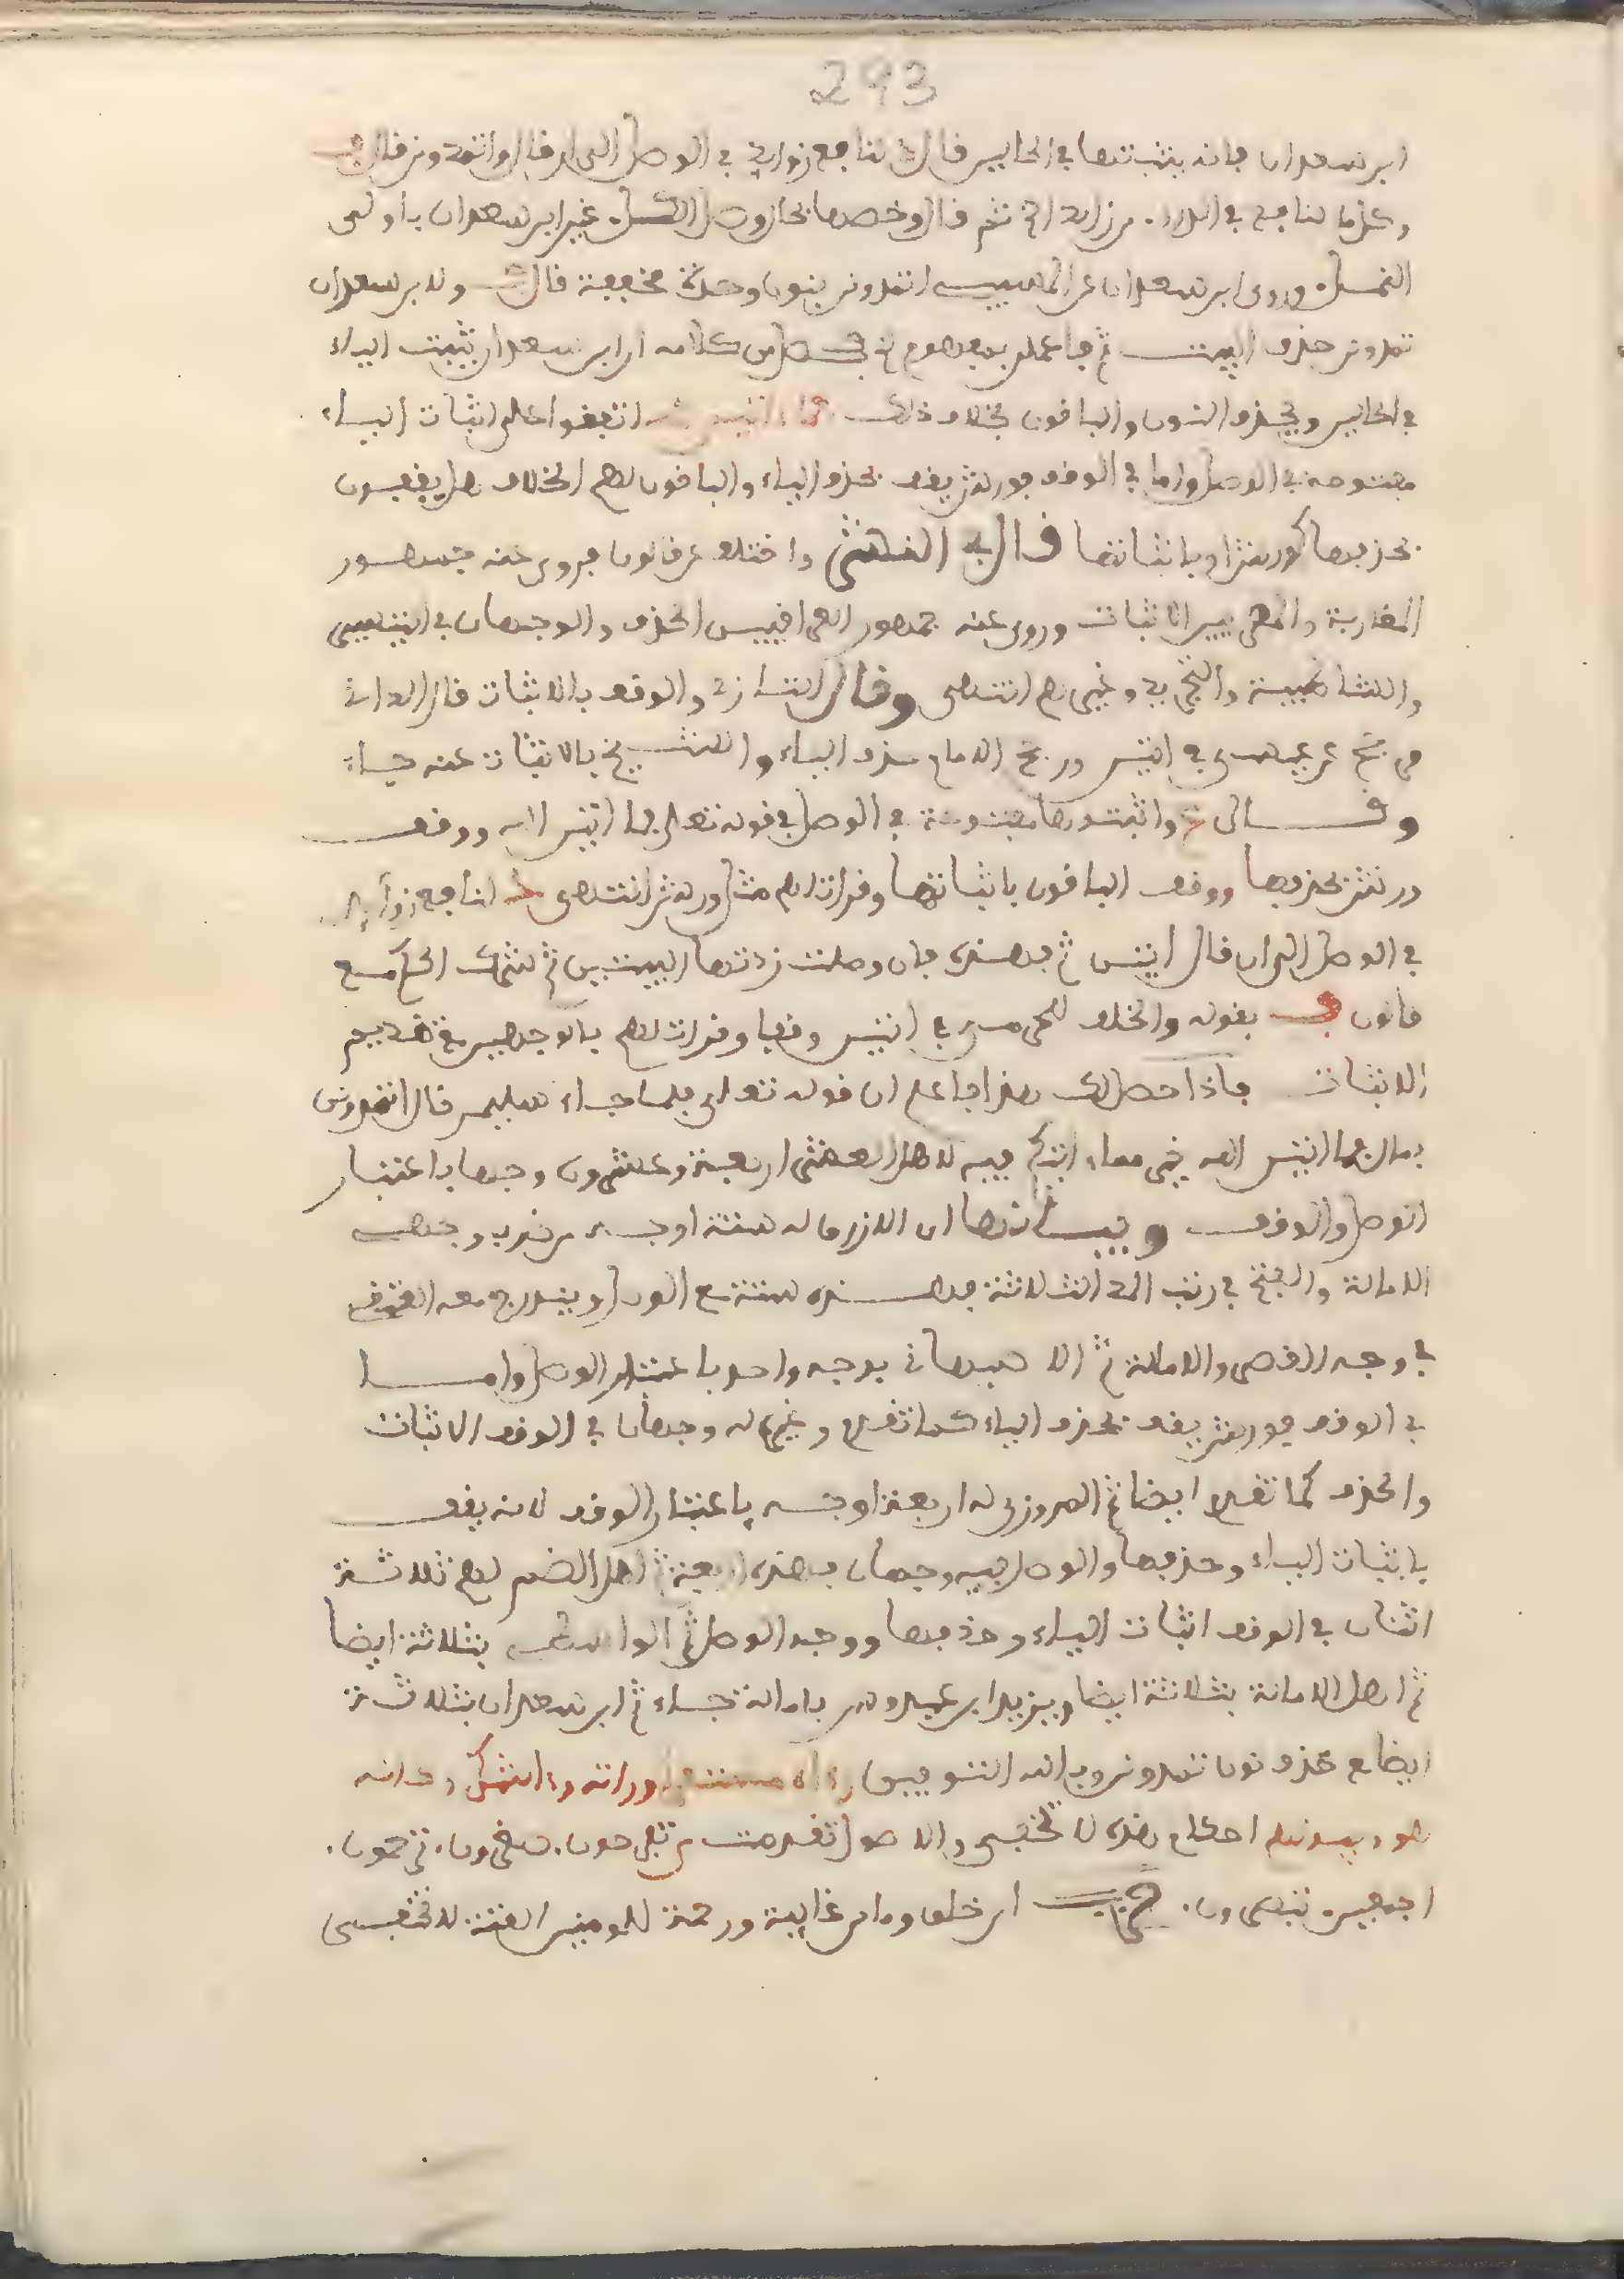 293
ابن سعدان فانه يثبتها في الحالين قال لنافع زوايد في الوصل الى ان قال واتمدونن قال
وكل ما لنافع في الدرر من زايد ثم قال وخصها بحال وصل الكل غير ابن سعدان باولى
النمل وروى ابن سعدان عن المسيبي اتمدونن بنون وحدة مخففة قال ولابن سعدان
تمدونن حذف البيت ثم فاعمل بمفهوم من كلامه ان ابن سعدان يثبت الياء
في الحالين ويحذف النون والباقون بخلاف ذلك اتفقوا على اثبات الياء
مفتوحة في الوصل واما في الوقف فورش يقف بحذف الياء والباقون لهم الخلاف هل يقفون
بحذفها كورش او باثباتها قال في النشر واختلف عن قالون فروى عنه جمهور
المغاربة والمصريين الاثبات وروى عنه جمهور العراقيين الحذف والوجهان في التيسير
والشاطبية والتجريد وغيرهم انتهى وقال والوقف بالاثبات قال الداني
في اتين ورجح الامام حذف الياء والشيخ بالاثبات عنه جاء
وقال واثبتوها مفتوحة في الوصل في قوله تعلى فما اتين الله ووقف
ورش بحذفها ووقف الباقون باثباتها وقراتهم مثل ورش انتهى لنافع زوايد
في الوصل الى ان قال اتين ثم فهذه فان وصلت زدتها البيتين ثم شهر الحكم مع
قالون بقوله والخلف في اتين وقفا وقرات لهم بالوجهين مع تقديم
الاثبات فاذا حصل لك هذا فاعلم ان قوله تعلى فلما جاء سليمن قال اتمدونن
بمال فما اتين الله خير مما اتيكم فيه لاهل العشر اربعة وعشرون وجها باعتبار
الوصل والوقف وبيانها ان الازرق له ستة اوجه من ضرب وجهي
الامالة والفتح في رتب المد الثلاثة فهذه ستة مع الوصل ويندرج معه العتقي
في وجه القصر والامالة ثم الاصبهاني بوجه واحد باعتبار الوصل واما
في الوقف فورش يقف بحذف الياء كما تقدم وغيره له وجهان في الوقف الاثبات
والحذف كما تقدم ايضا ثم المروزي له اربعة اوجه باعتبار الوقف لانه يقف
باثبات الياء وحذفها والوصل فيه وجهان فهذه اربعة ثم اهل الضم لهم ثلاثة
اثنان في الوقف اثبات الياء وحذفها ووجه الوصل ثم الواسطي بثلاثة ايضا
ثم اهل الامالة بثلاثة ايضا ويزيد ابن عبدوس بامالة جاء ثم ابن سعدان بثلاثة
ايضا مع حذف نون تمدونن وبالله التوفيق راه مستقرا وراته وءاشكر وكانه
هو احكام هذه لا تخفى والاصول تقدمت تفرحون. صغرون. ترحمون.
اجمعين. تبصرون. امن خلق وما من غايبة ورحمة للمومنين الفتة لا تخفى